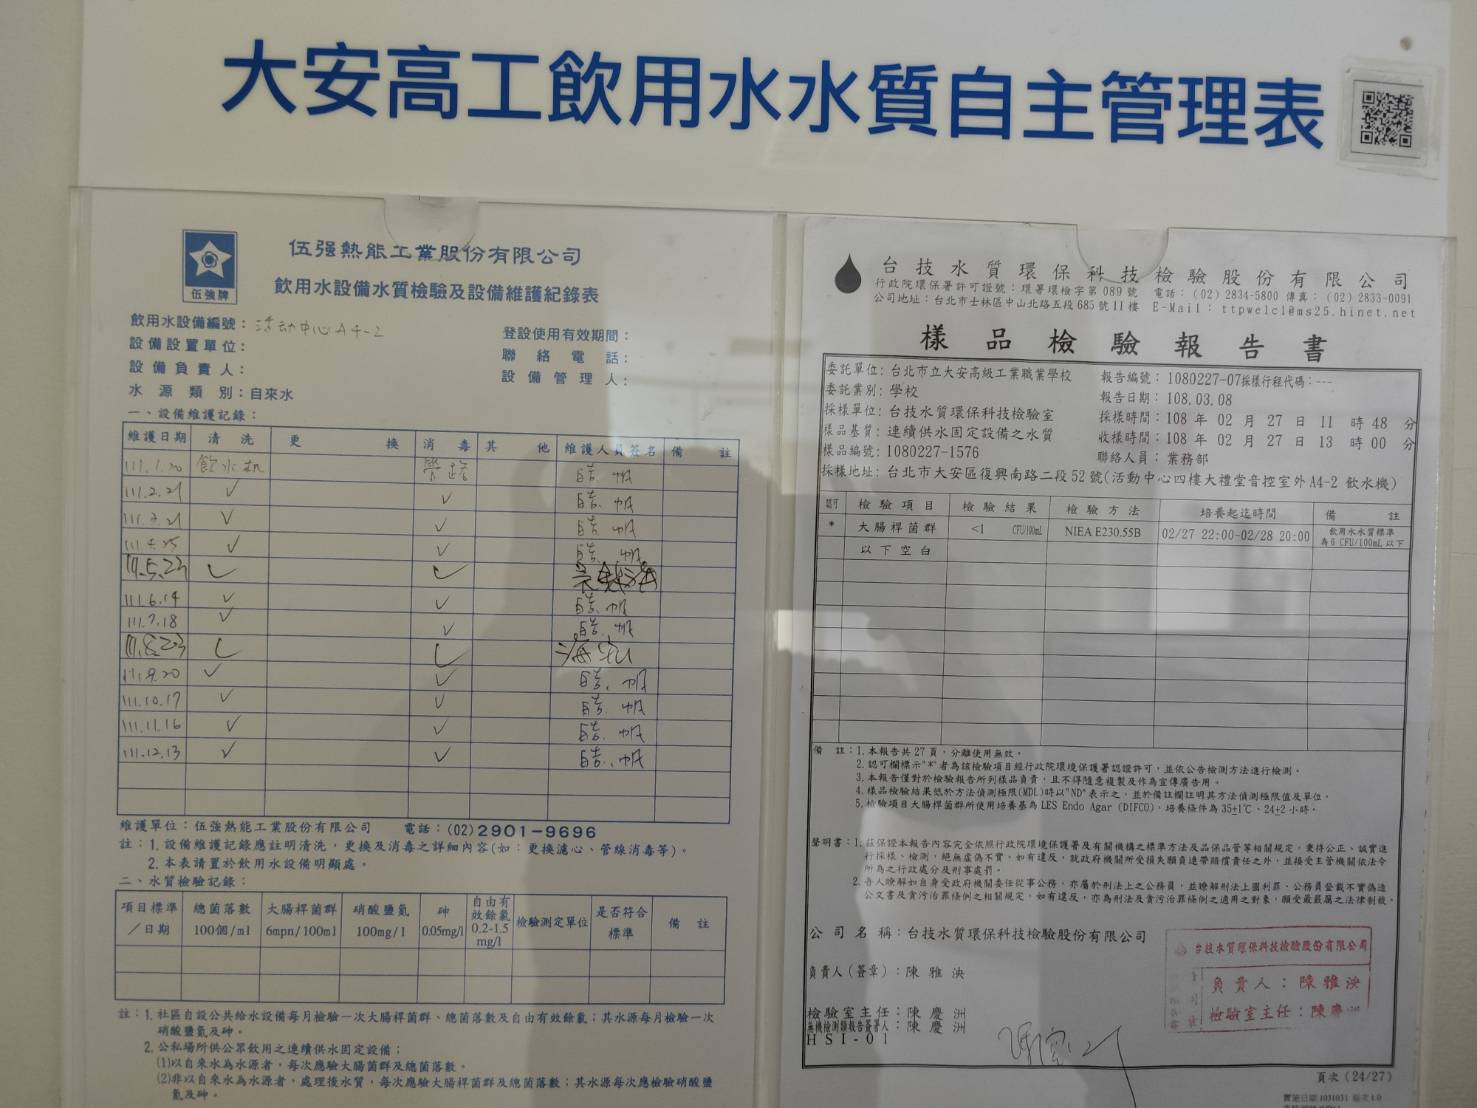 大安高工飲用水水質自主管理表
伍強牌
伍强熱能工業股份有限公司
飲用水設備水質檢驗及設備維護紀錄表
飲用水設備編號：活动中心A4-2
登設使用有效期間：
設備設置單位：
聯絡電話：
設備負責人：
設備管理人：
水源類別：自來水
一、設備維護記錄：
維護日期 清洗 更換 消毒 其他 維護人員簽名 備註
111.1.20 飲水机 管路
111.2.21 ✓ ✓
111.3.21 ✓ ✓
111.4.25 ✓ ✓
111.5.23 ✓ ✓
111.6.14 ✓ ✓
111.7.18 ✓ ✓
111.8.23 ✓ ✓
111.9.20 ✓ ✓
111.10.17 ✓ ✓
111.11.16 ✓ ✓
111.12.13 ✓ ✓
維護單位：伍強熱能工業股份有限公司 電話：(02)2901-9696
註：1.設備維護記錄應註明清洗，更換及消毒之詳細內容(如：更換濾心、管線消毒等)。
2.本表請置於飲用水設備明顯處。
二、水質檢驗記錄：
項目標準／日期 總菌落數100個/ml 大腸桿菌群6mpn/100ml 硝酸鹽氮100mg/l 砷0.05mg/l 自由有效餘氯0.2-1.5mg/l 檢驗測定單位 是否符合標準 備註
註：1.社區自設公共給水設備每月檢驗一次大腸桿菌群、總菌落數及自由有效餘氯；其水源每月檢驗一次
硝酸鹽氮及砷。
2.公私場所供公眾飲用之連續供水固定設備；
(1)以自來水為水源者，每次應驗大腸菌群及總菌落數。
(2)非以自來水為水源者，處理後水質，每次應驗大腸桿菌群及總菌落數；其水源每次應檢驗硝酸鹽
氮及砷。
台技水質環保科技檢驗股份有限公司
行政院環保署許可證號：環署環檢字第089號 電話：(02)2834-5800 傳真：(02)2833-0091
公司地址：台北市士林區中山北路五段685號11樓 E-Mail：ttpwelcl@ms25.hinet.net
樣品檢驗報告書
委託單位：台北市立大安高級工業職業學校
報告編號：1080227-07採樣行程代碼：---
委託業別：學校
報告日期：108.03.08
採樣單位：台技水質環保科技檢驗室
採樣時間：108年02月27日11時48分
樣品基質：連續供水固定設備之水質
收樣時間：108年02月27日13時00分
樣品編號：1080227-1576
聯絡人員：業務部
採樣地址：台北市大安區復興南路二段52號(活動中心四樓大禮堂音控室外A4-2 飲水機)
認可 檢驗項目 檢驗結果 檢驗方法 培養起迄時間 備註
* 大腸桿菌群 <1 CFU/100mL NIEA E230.55B 02/27 22:00-02/28 20:00 飲用水水質標準為6 CFU/100mL以下
以下空白
備註：1.本報告共27頁，分離使用無效。
2.認可欄標示"*"者為該檢驗項目經行政院環境保護署認證許可，並依公告檢測方法進行檢測。
3.本報告僅對於檢驗報告所列樣品負責，且不得隨意複製及作為宣傳廣告用。
4.樣品檢驗結果低於方法偵測極限(MDL)時以"ND"表示之，並於備註欄註明其方法偵測極限值及單位。
5.檢驗項目大腸桿菌群所使用培養基為LES Endo Agar (DIFCO)，培養條件為35±1℃、24±2小時。
聲明書：1.茲保證本報告內容完全依照行政院環境保護署及有關機構之標準方法及品保品管等相關規定，秉持公正、誠實進
行採樣、檢測，絕無虛偽不實，如有違反，就政府機關所受損失願負連帶賠償責任之外，並接受主管機關依法令
所為之行政處分及刑事處罰。
2.吾人瞭解如自身受政府機關委任從事公務，亦屬於刑法上之公務員，並瞭解刑法上圖利罪、公務員登載不實偽造
公文書及貪污治罪條例之相關規定，如有違反，亦為刑法及貪污治罪條例之適用之對象，願受最嚴厲之法律制裁。
公司名稱：台技水質環保科技檢驗股份有限公司
負責人(簽章)：陳雅泱
檢驗室主任：陳慶洲
無機檢測類報告簽署人：陳慶洲
HSI-01
台技水質環保科技檢驗股份有限公司
負責人：陳雅泱
檢驗室主任：陳慶
頁次(24/27)